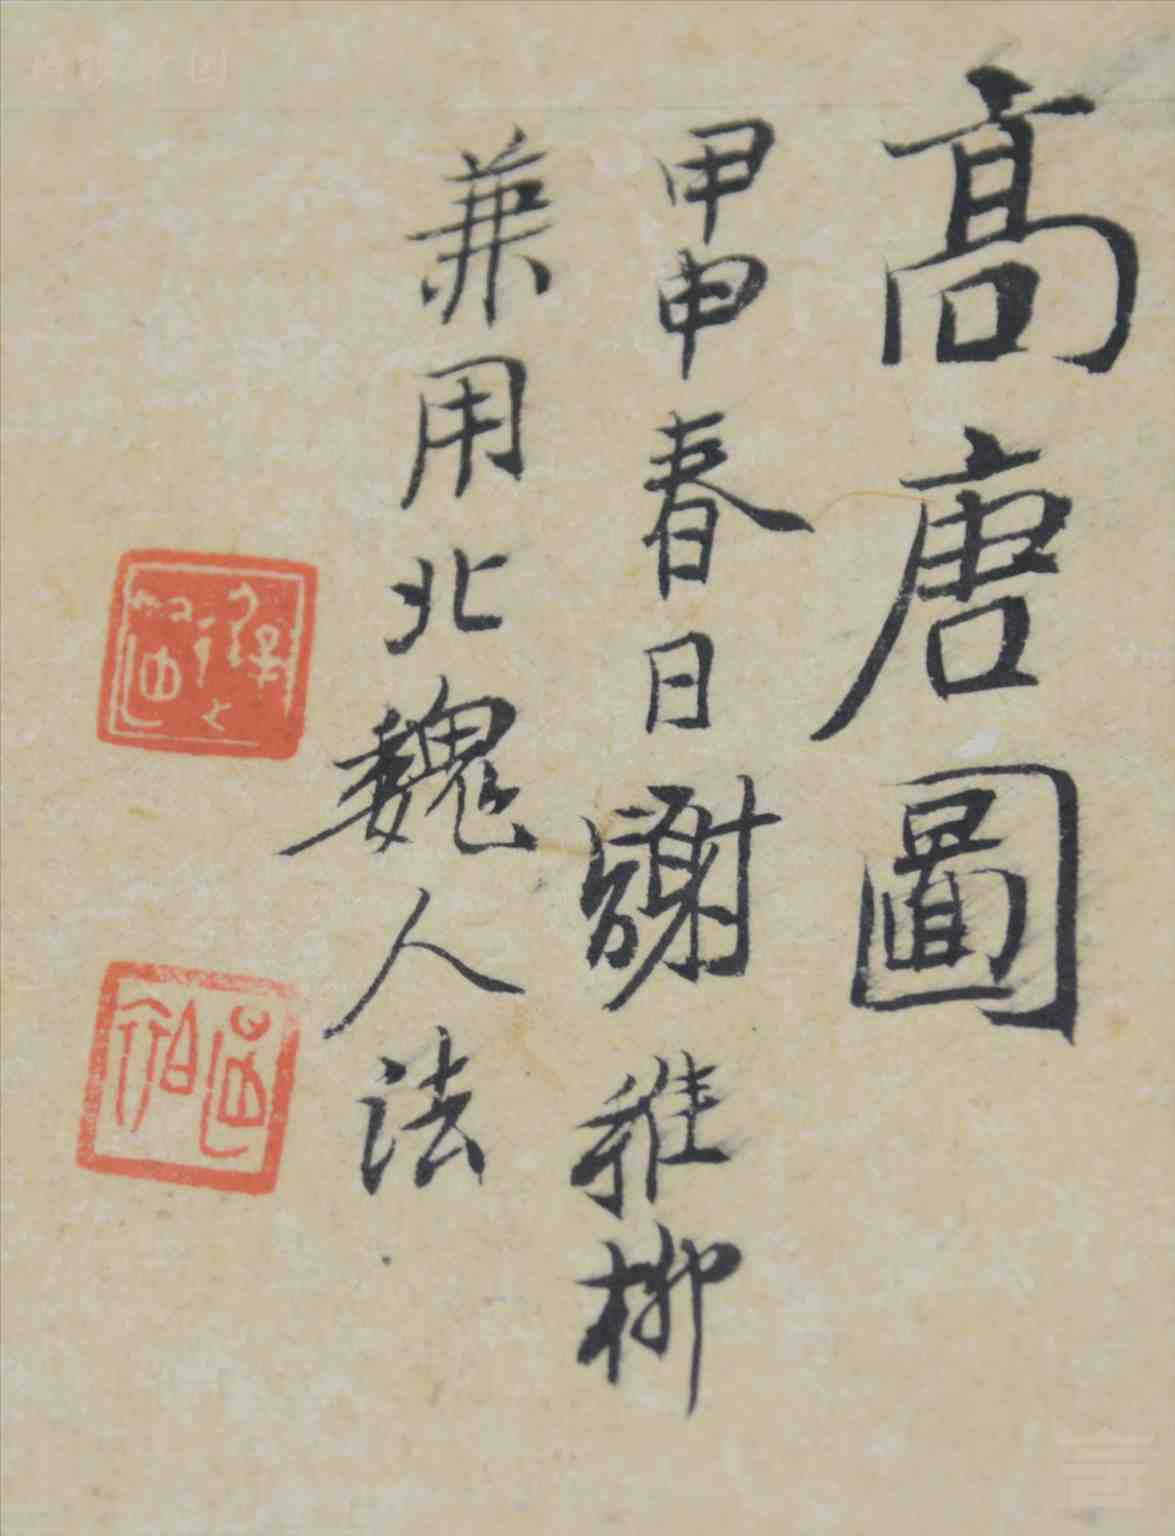 高唐圖
甲申春日謝稚柳
兼用北魏人法